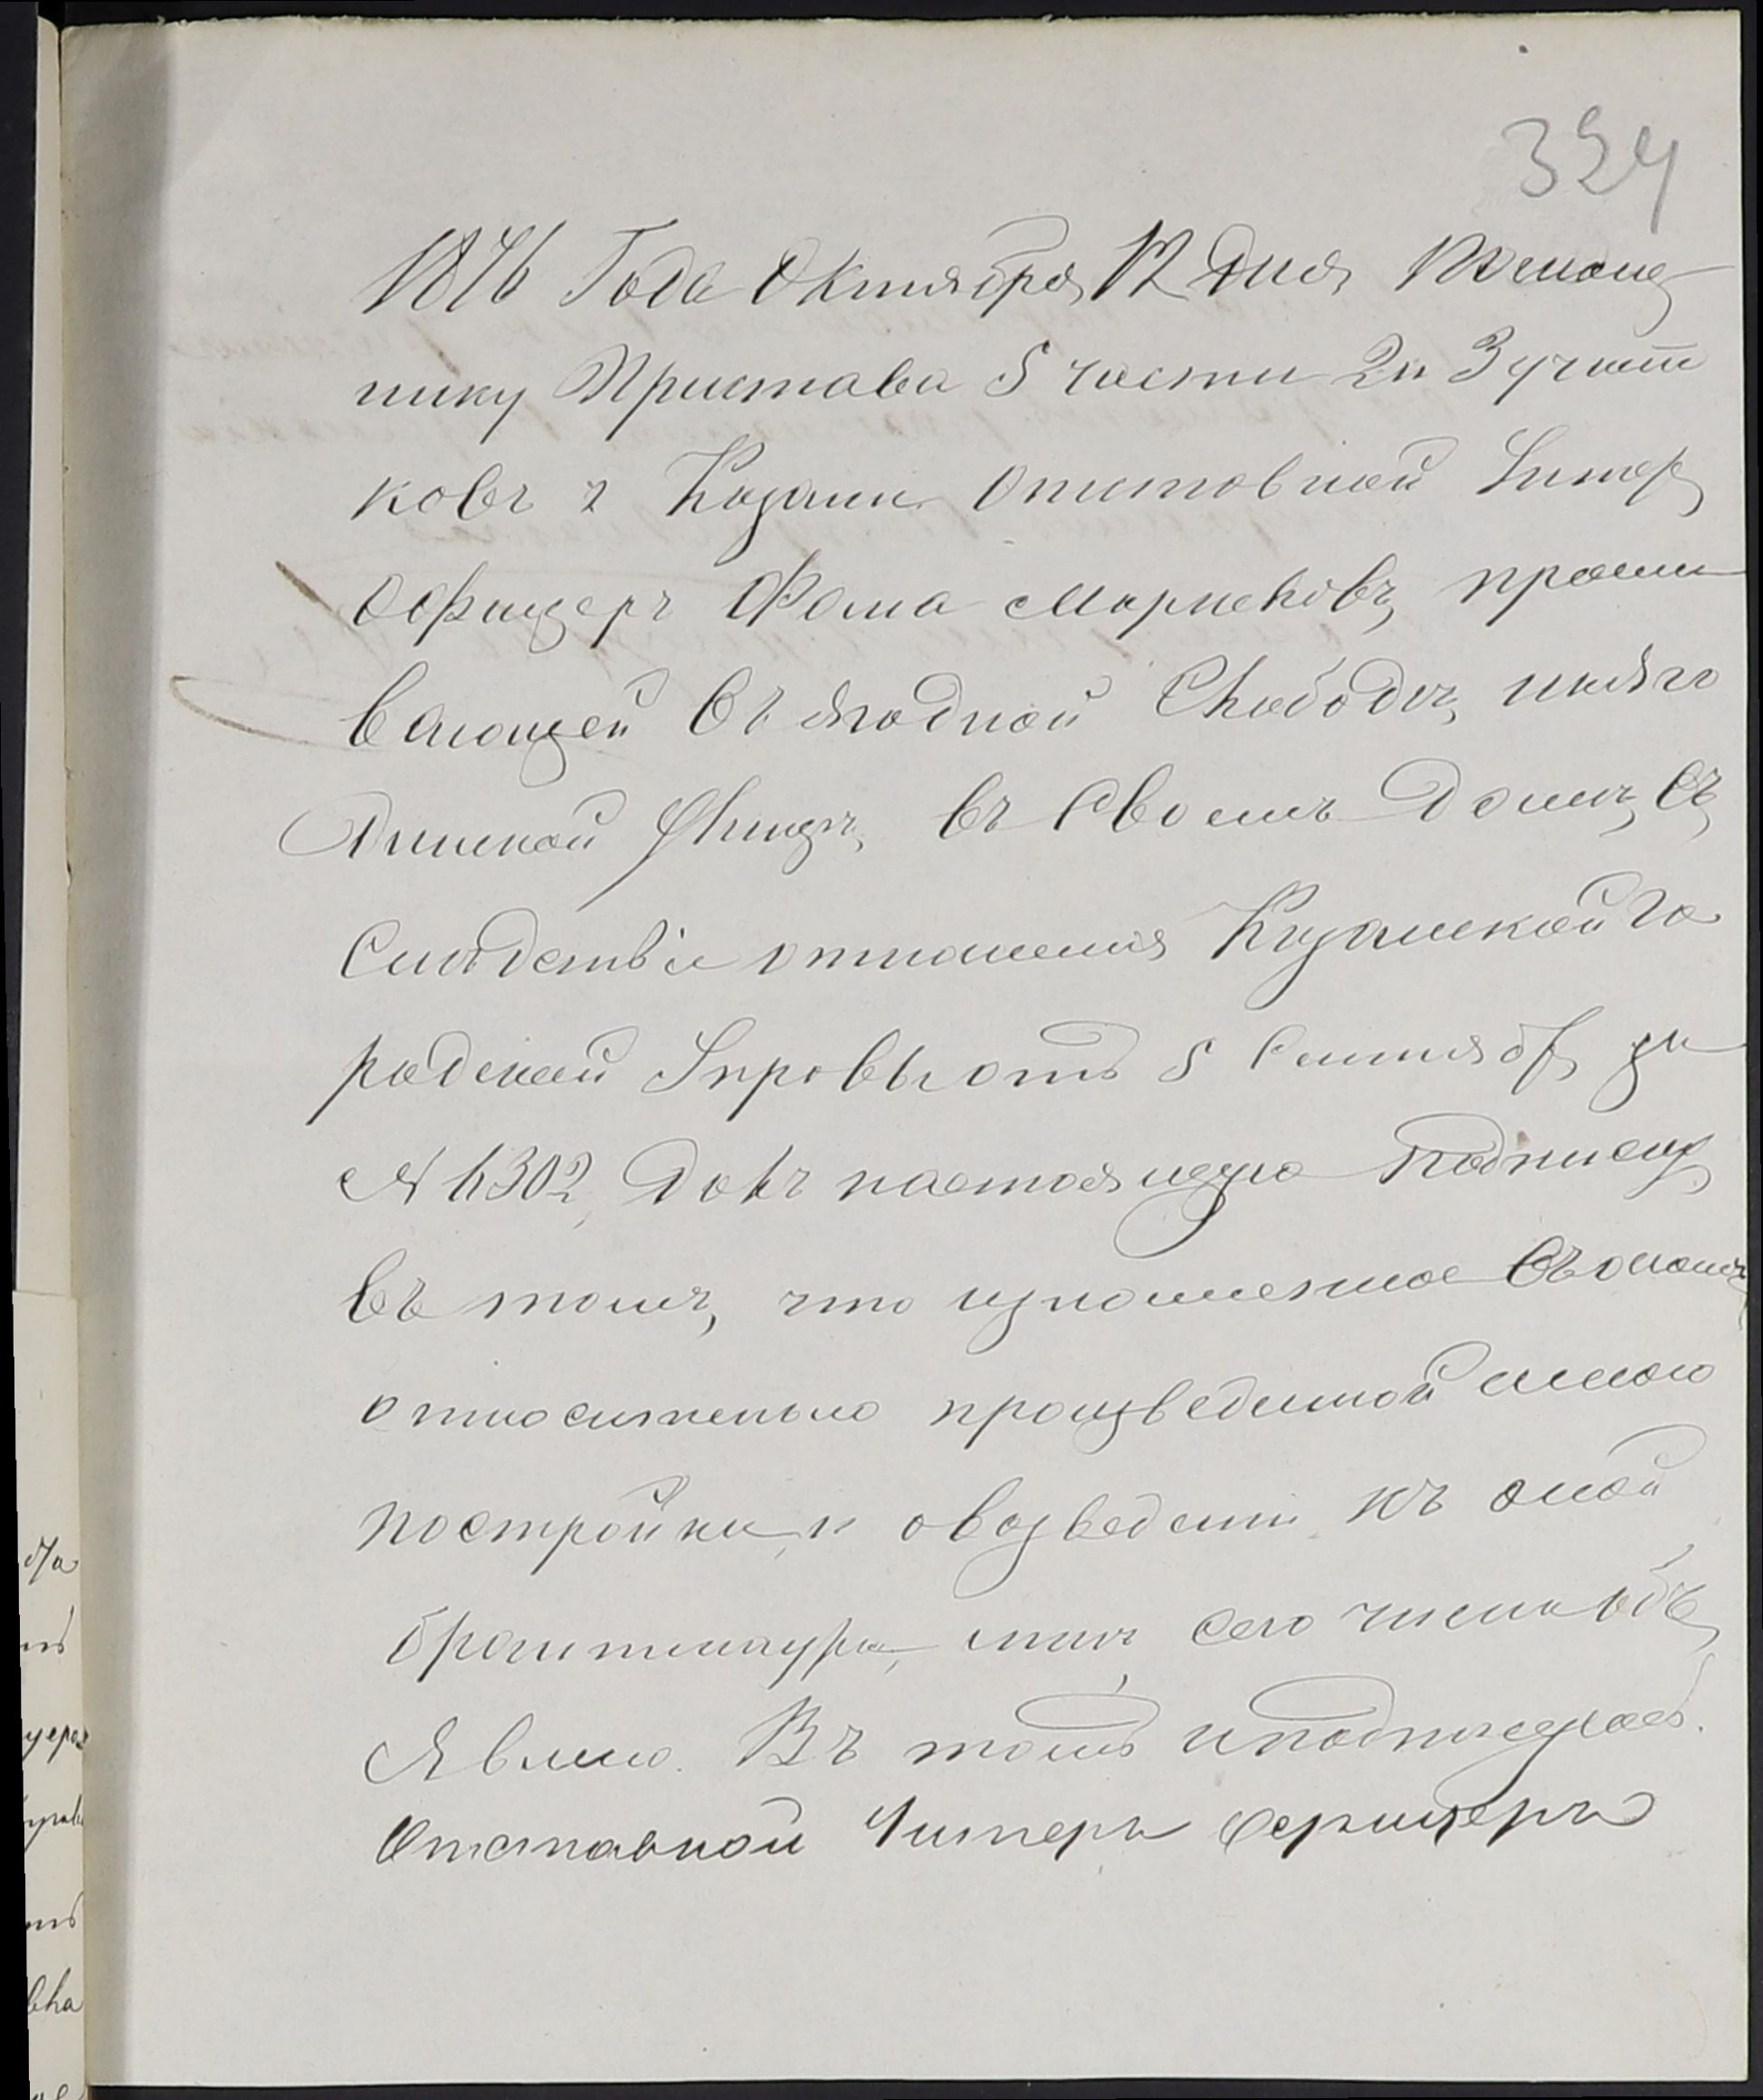 324
1876 Года Октября 12 дня Помощ
нику Пристава 5 части 2 и 3 участ
ковъ г Казани отставной Унтер
Офицеръ Фома прожи
вающей въ Ягодной Слободѣ, на
улицѣ, въ своемъ домѣ, въ
слѣдствіе отношенія Казанской Го
родской Управы отъ 5 Сентяб за
№ 6302, далъ настоящую подписку
въ томъ, что изложенное въ ономъ
относительно произведенной мною
постройки и о возведеніи къ оной
брантмаура, мнѣ сего числа объ
явлено. Въ томъ и подписуюсь.
Отставной Унтеръ Офицеръ